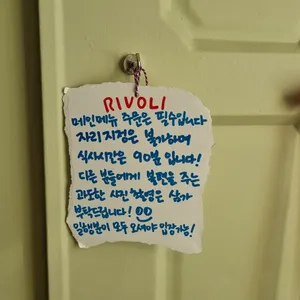 RIVOLI
메인메뉴 주문은 필수입니다
자리지정은 불가하며
식사시간은 90분 입니다!
다른 분들에게 불편을 주는
과도한 사진 촬영은 삼가
부탁드립니다!
일행분이 모두 오셔야 입장가능!